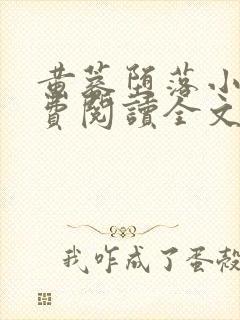 黄蓉堕落小
费阅读全文
我咋成了蛋殼